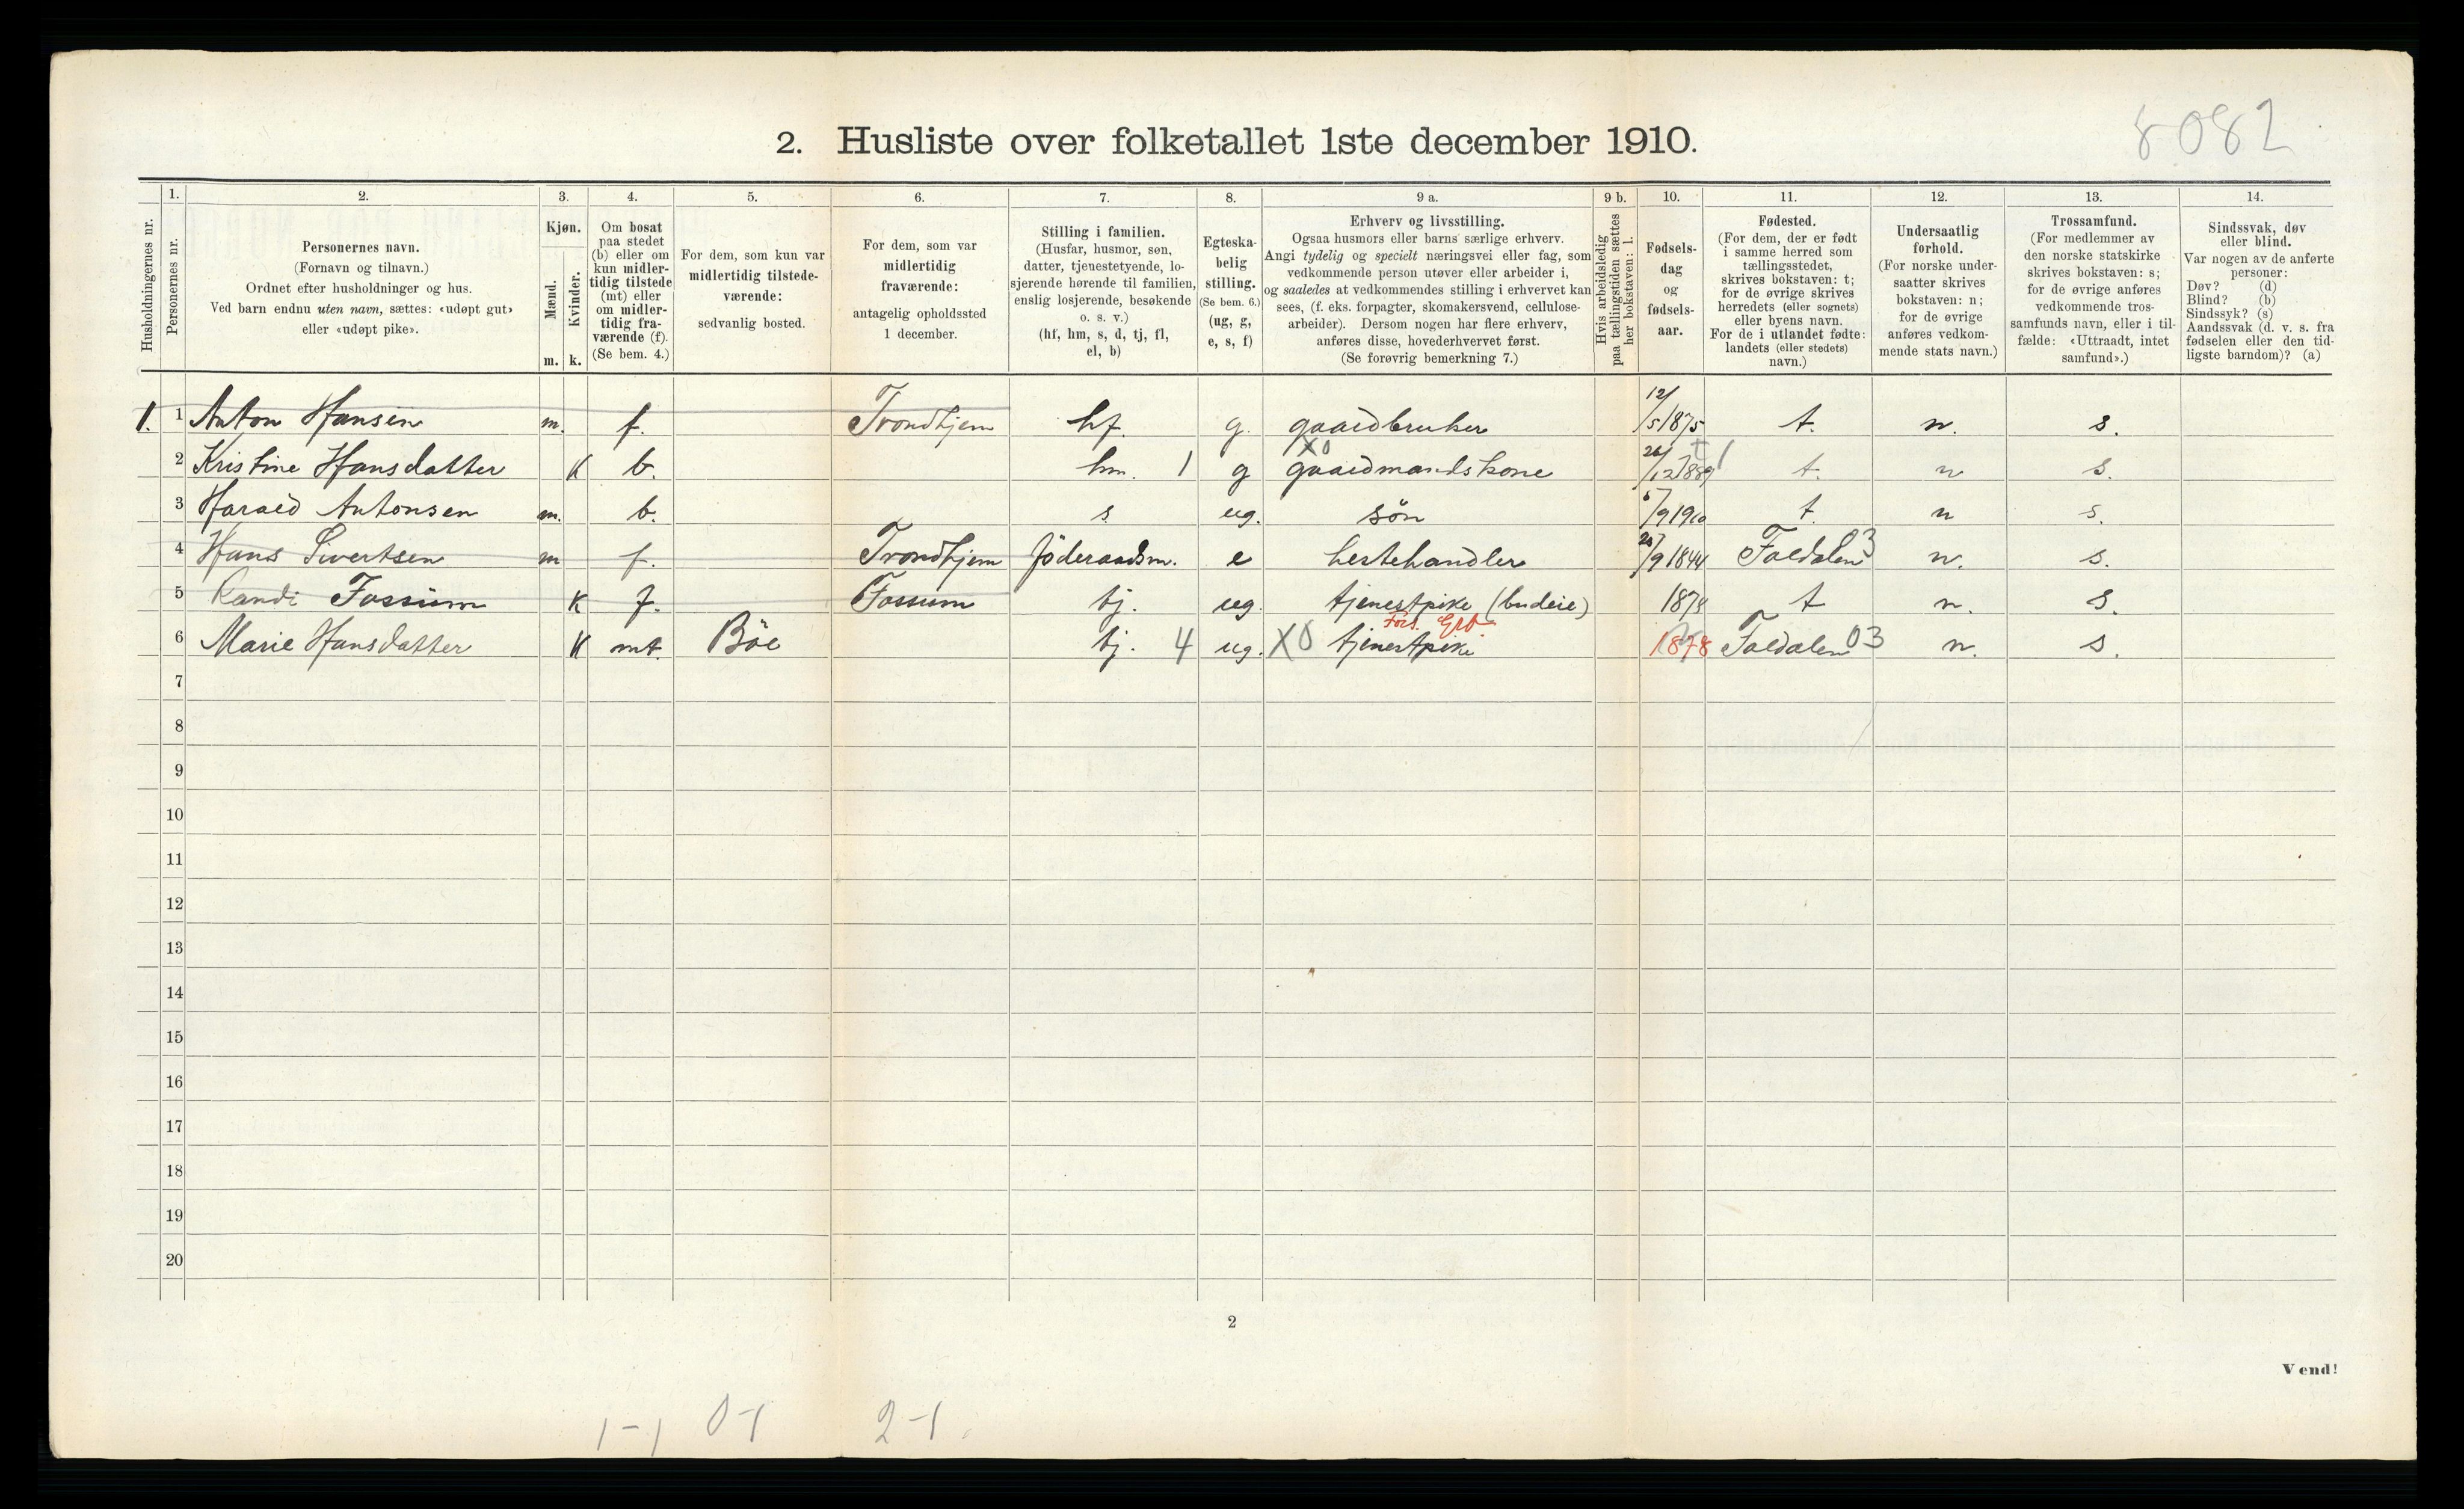 8082
2. Husliste over folketallet 1ste december 1910.
1. 2. 3. 4. 5. 6. 7. 8. 9 a. 9 b. 10. 11. 12. 13. 14.
Husholdningernes nr.
Personernes nr.
Personernes navn.
(Fornavn og tilnavn.)
Ordnet efter husholdninger og hus.
Ved barn endnu uten navn, sættes: «udøpt gut»
eller «udøpt pike».
Kjøn.
Mænd.
Kvinder.
m. k.
Om bosat
paa stedet
(b) eller om
kun midler-
tidig tilstede
(mt) eller
om midler-
tidig fra-
værende (f).
(Se bem. 4.)
For dem, som kun var
midlertidig tilstede-
værende:
sedvanlig bosted.
For dem, som var
midlertidig
fraværende:
antagelig opholdssted
1 december.
Stilling i familien.
(Husfar, husmor, søn,
datter, tjenestetyende, lo-
sjerende hørende til familien,
enslig losjerende, besøkende
o. s. v.)
(hf, hm, s, d, tj, fl,
el, b)
Egteska-
belig
stilling.
(Se bem. 6.)
(ug, g,
e, s, f)
Erhverv og livsstilling.
Ogsaa husmors eller barns særlige erhverv.
Angi tydelig og specielt næringsvei eller fag, som
vedkommende person utøver eller arbeider i,
og saaledes at vedkommendes stilling i erhvervet kan
sees, (f. eks. forpagter, skomakersvend, cellulose-
arbeider). Dersom nogen har flere erhverv,
anføres disse, hovederhvervet først.
(Se forøvrig bemerkning 7.)
Hvis arbeidsledig
paa tællingstiden sættes
her bokstaven: l.
Fødsels-
dag
og
fødsels-
aar.
Fødested.
(For dem, der er født
i samme herred som
tællingsstedet,
skrives bokstaven: t;
for de øvrige skrives
herredets (eller sognets)
eller byens navn.
For de i utlandet fødte:
landets (eller stedets)
navn.)
Undersaatlig
forhold.
(For norske under-
saatter skrives
bokstaven: n;
for de øvrige
anføres vedkom-
mende stats navn.)
Trossamfund.
(For medlemmer av
den norske statskirke
skrives bokstaven: s;
for de øvrige anføres
vedkommende tros-
samfunds navn, eller i til-
fælde: «Uttraadt, intet
samfund».)
Sindssvak, døv
eller blind.
Var nogen av de anførte
personer:
Døv? (d)
Blind? (b)
Sindssyk? (s)
Aandssvak (d. v. s. fra
fødselen eller den tid-
ligste barndom)? (a)
1. 1 Anton Hansen m. f. Trondhjem hf. g. gaardbruker 12/5 1875 t. n. s.
2 Kristine Hansdatter K b. hm. 1 g X0 gaardmandskone 26/12 1889 t. n s.
3 Harald Antonsen m. b. s. ug. søn 6/9 1910 t. n s.
4 Hans Sivertsen m f. Trondhjem föderaadsm. e hestehandler 20/9 1844 Foldalen 3 n. s.
5 Randi Fossum K f. Fossum tj. ug. tjenestpike (budeie) 1878 t n. s.
6 Marie Hansdatter K mt. Böe tj. 4 ug. X0 tjenestpike 1878 Foldalen 03 n. s.
7
8
9
10
11
12
13
14
15
16
17
18
19
20
2
Vend!
1-1 0-1 2-1